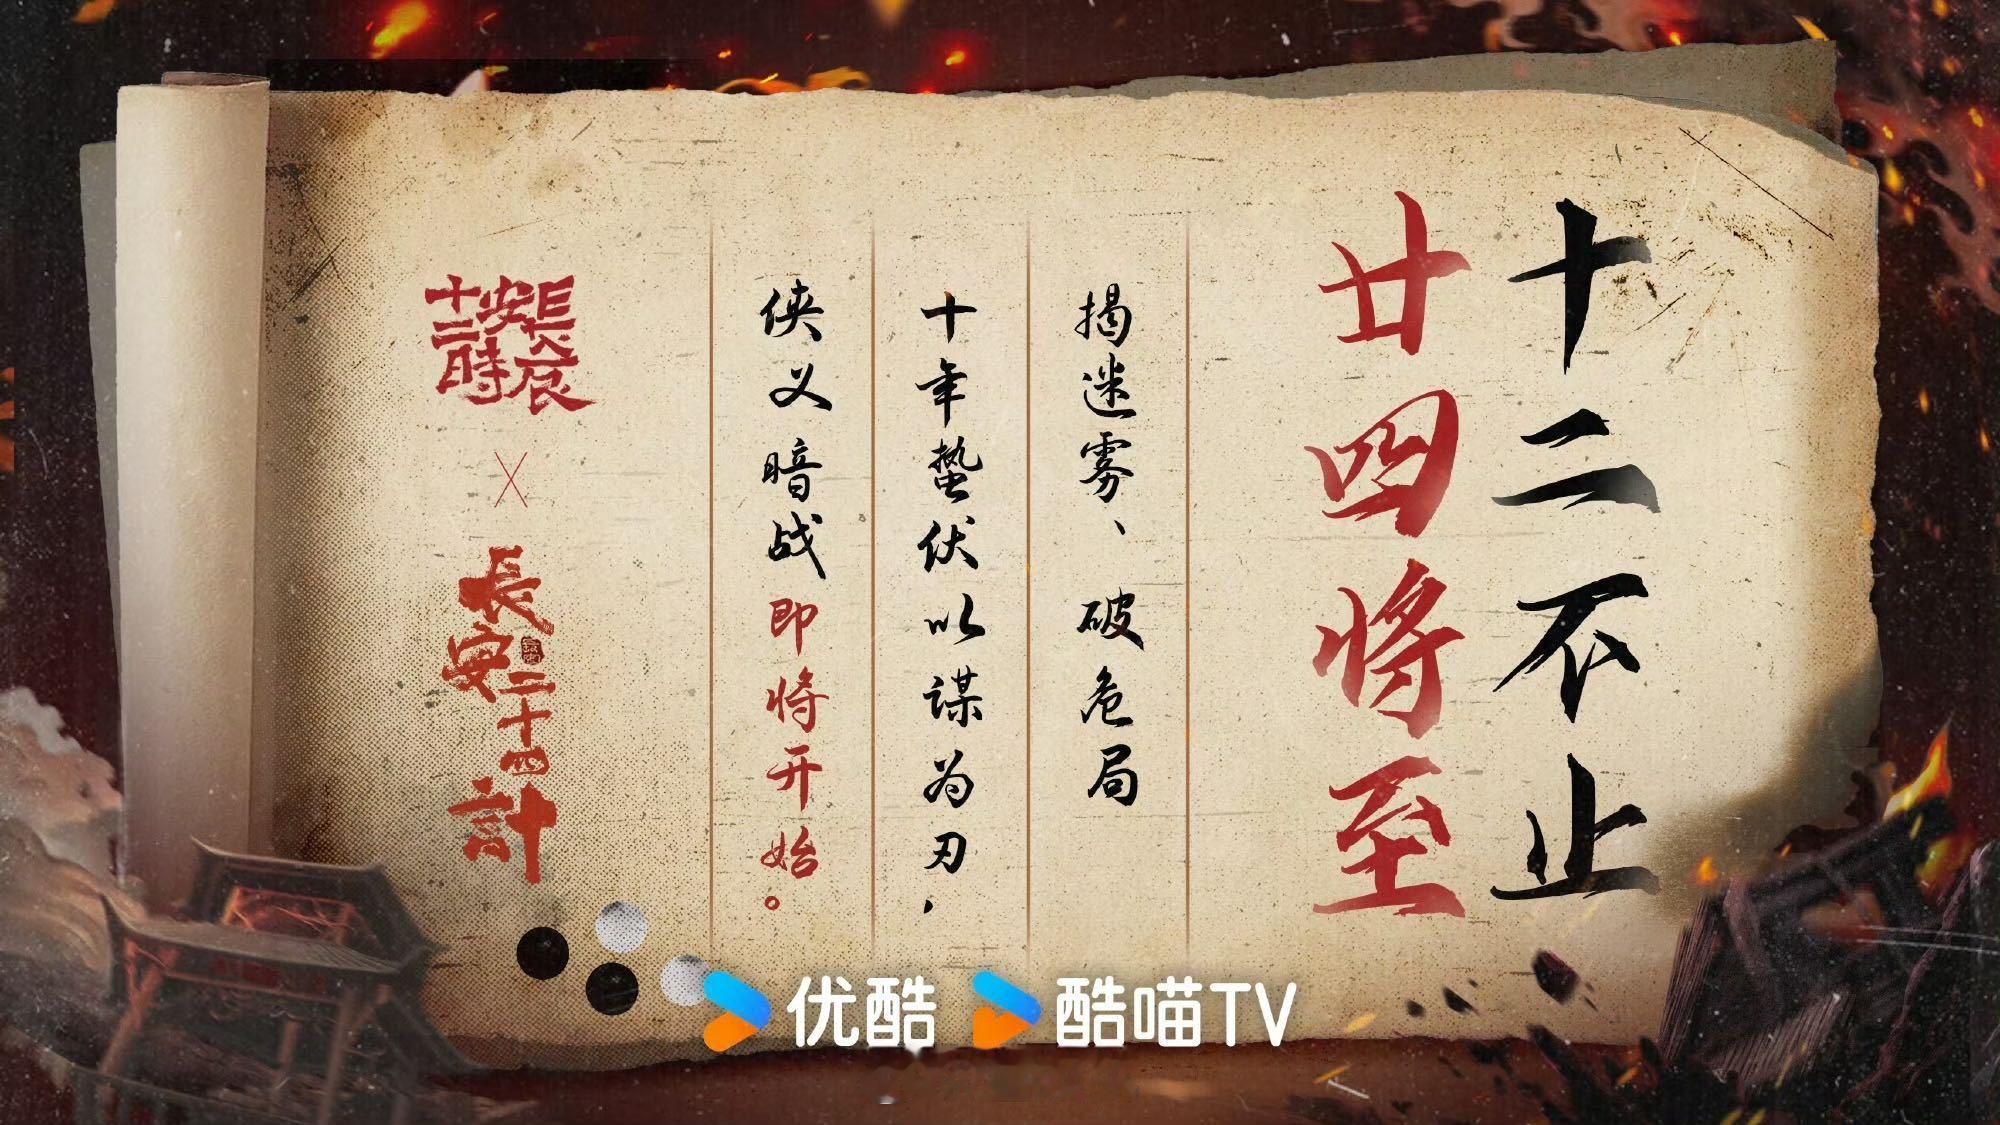 十二不止
廿四将至
揭迷雾、破危局
十年蛰伏以谋为刃,
侠义暗战即将开始。
長安十二時辰
×
長安二十四計
优酷 酷喵TV